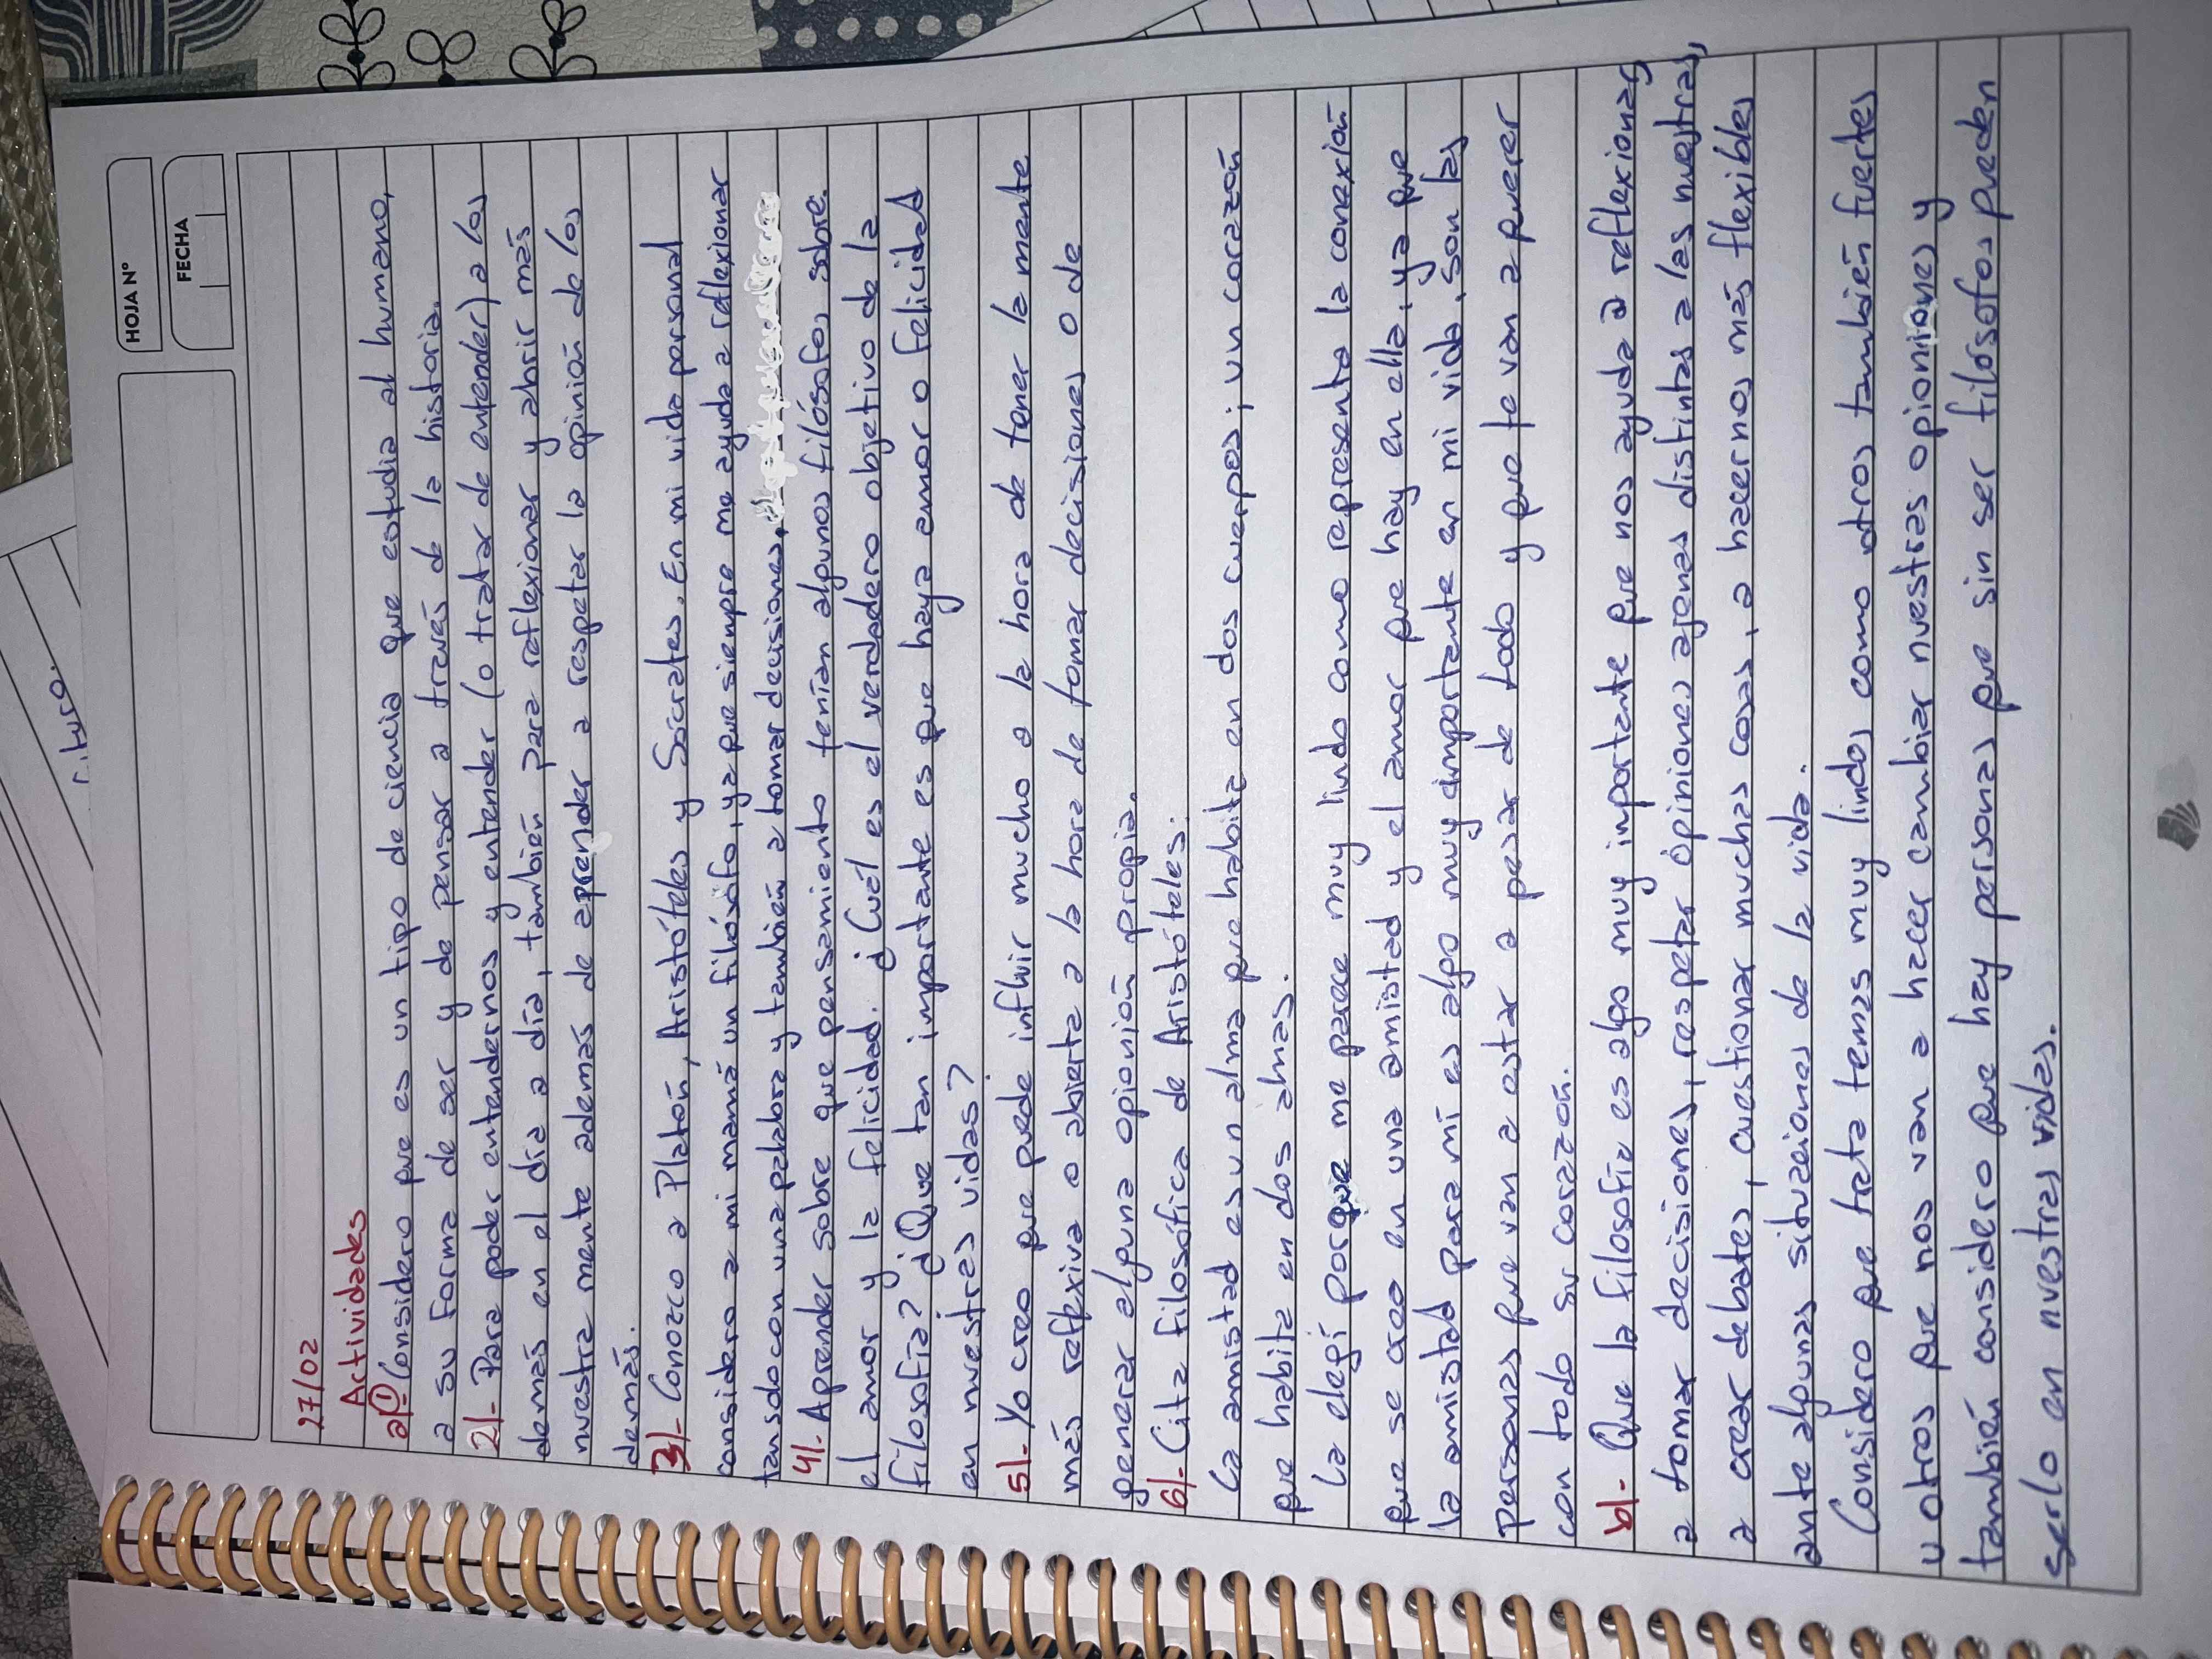 HOJA N°
FECHA
27/02
Actividades
a)① Considero que es un tipo de ciencia que estudia al humano,
a su forma de ser y de pensar a través de la historia.
2)- Para poder entendernos y entender (o tratar de entender) a los
demás en el día a día, también para reflexionar y abrir más
nuestra mente además de aprender a respetar la opinión de los
demás.
3)- Conozco a Platón, Aristóteles y Sócrates. En mi vida personal
considero a mi mamá un filósofo, ya que siempre me ayuda a reflexionar
tan solo con una palabra y también a tomar decisiones.
4)- Aprender sobre que pensamiento tenían algunos filósofos sobre
el amor y la felicidad. ¿Cuál es el verdadero objetivo de la
filosofía? ¿Que tan importante es que haya amor o felicidad
en nuestras vidas?
5)- Yo creo que puede influir mucho a la hora de tener la mente
más reflexiva o abierta a la hora de tomar decisiones o de
generar alguna opinión propia.
6)- Cita filosófica de Aristóteles:
La amistad es un alma que habita en dos cuerpos; un corazón
que habita en dos almas.
La elegí porque me parece muy lindo como representa la conexión
que se crea en una amistad y el amor que hay en ella, ya que
la amistad para mí es algo muy importante en mi vida, son las
personas que van a estar a pesar de todo y que te van a querer
con todo su corazón.
b)- Que la filosofía es algo muy importante que nos ayuda a reflexionar,
a tomar decisiones, respetar opiniones ajenas distintas a las nuestras,
a crear debates, cuestionar muchas cosas, a hacernos más flexibles
ante algunas situaciones de la vida.
Considero que trata temas muy lindos como otros también fuertes
u otros que nos van a hacer cambiar nuestras opiniones y
también considero que hay personas que sin ser filósofos pueden
serlo en nuestras vidas.